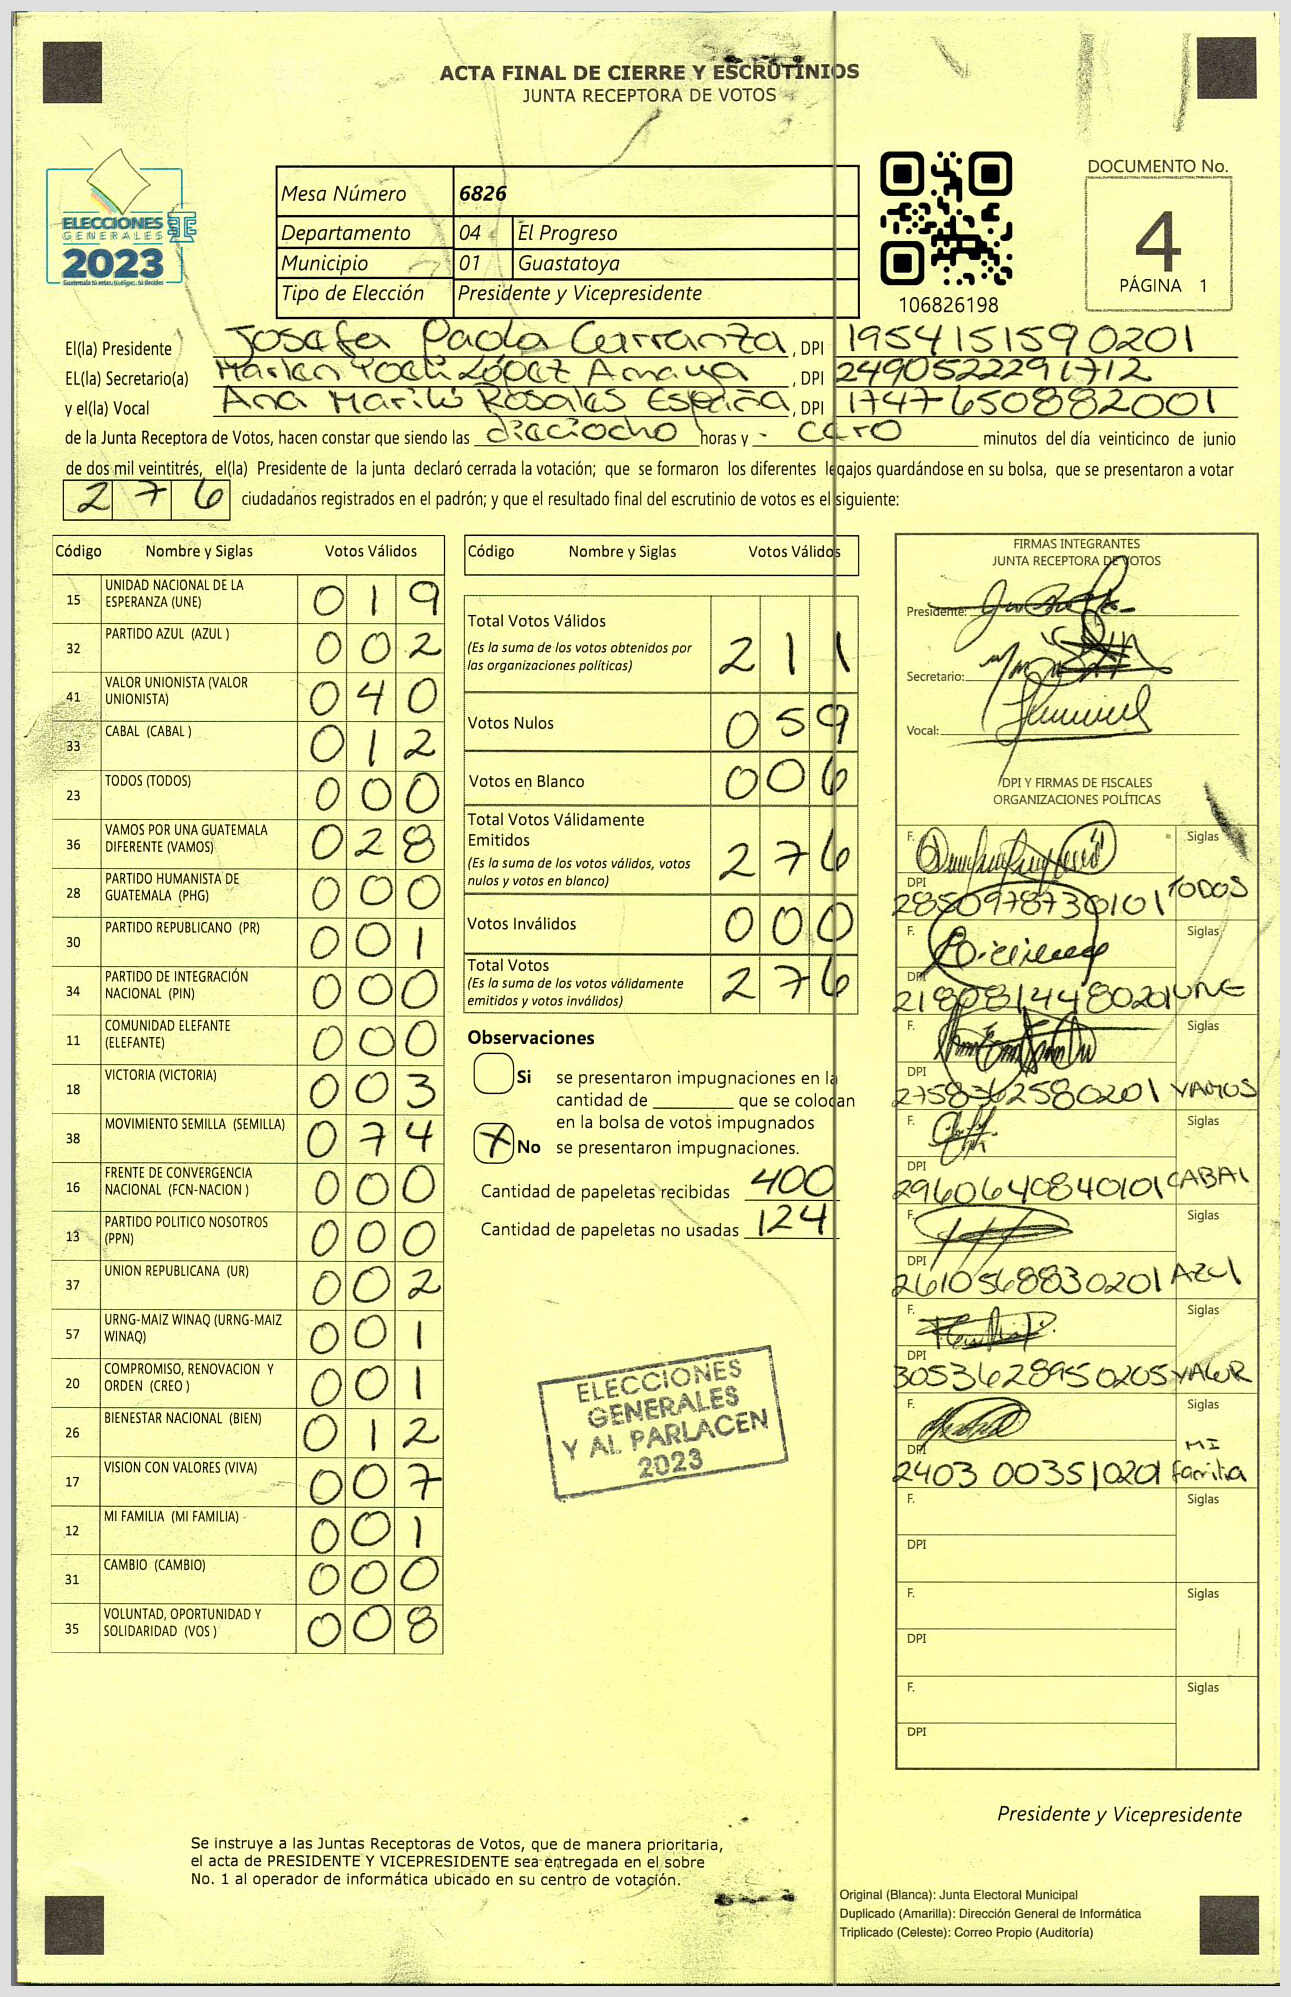 ACTA FINAL DE CIERRE Y ESCRUTINIOS
JUNTA RECEPTORA DE VOTOS
ELECCIONES
GENERALES
2023
Mesa Número 6826
Departamento 04 El Progreso
Municipio 01 Guastatoya
Tipo de Elección Presidente y Vicepresidente
106826198
DOCUMENTO No.
4
PÁGINA 1
El(la) Presidente Josefa Paola Carranza, DPI 1954151590201
EL(la) Secretario(a) Marlen Yoeli López Amaya, DPI 2490522291712
y el(la) Vocal Ana Marilú Rosales España, DPI 1747650882001
de la Junta Receptora de Votos, hacen constar que siendo las dieciocho horas y cero minutos del día veinticinco de junio
de dos mil veintitrés, el(la) Presidente de la junta declaró cerrada la votación; que se formaron los diferentes legajos guardándose en su bolsa, que se presentaron a votar
276 ciudadanos registrados en el padrón; y que el resultado final del escrutinio de votos es el siguiente:
Código Nombre y Siglas Votos Válidos
15 UNIDAD NACIONAL DE LA ESPERANZA (UNE) 019
32 PARTIDO AZUL (AZUL ) 002
41 VALOR UNIONISTA (VALOR UNIONISTA) 040
33 CABAL (CABAL ) 012
23 TODOS (TODOS) 000
36 VAMOS POR UNA GUATEMALA DIFERENTE (VAMOS) 028
28 PARTIDO HUMANISTA DE GUATEMALA (PHG) 000
30 PARTIDO REPUBLICANO (PR) 001
34 PARTIDO DE INTEGRACIÓN NACIONAL (PIN) 000
11 COMUNIDAD ELEFANTE (ELEFANTE) 000
18 VICTORIA (VICTORIA) 003
38 MOVIMIENTO SEMILLA (SEMILLA) 074
16 FRENTE DE CONVERGENCIA NACIONAL (FCN-NACION ) 000
13 PARTIDO POLITICO NOSOTROS (PPN) 000
37 UNION REPUBLICANA (UR) 002
57 URNG-MAIZ WINAQ (URNG-MAIZ WINAQ) 001
20 COMPROMISO, RENOVACION Y ORDEN (CREO ) 001
26 BIENESTAR NACIONAL (BIEN) 012
17 VISION CON VALORES (VIVA) 007
12 MI FAMILIA (MI FAMILIA) 001
31 CAMBIO (CAMBIO) 000
35 VOLUNTAD, OPORTUNIDAD Y SOLIDARIDAD (VOS ) 008
Código Nombre y Siglas Votos Válidos
Total Votos Válidos 211
(Es la suma de los votos obtenidos por
las organizaciones políticas)
Votos Nulos 059
Votos en Blanco 006
Total Votos Válidamente
Emitidos 276
(Es la suma de los votos válidos, votos
nulos y votos en blanco)
Votos Inválidos 000
Total Votos 276
(Es la suma de los votos válidamente
emitidos y votos inválidos)
Observaciones
Si se presentaron impugnaciones en la
cantidad de ________ que se colocan
en la bolsa de votos impugnados
X No se presentaron impugnaciones.
Cantidad de papeletas recibidas 400
Cantidad de papeletas no usadas 124
ELECCIONES
GENERALES
Y AL PARLACEN
2023
FIRMAS INTEGRANTES
JUNTA RECEPTORA DE VOTOS
Presidente:
Secretario:
Vocal:
DPI Y FIRMAS DE FISCALES
ORGANIZACIONES POLÍTICAS
F. Siglas
DPI 2850978730101 TODOS
F. Siglas
DPI 2180814480201 UNE
F. Siglas
DPI 2758362580201 VAMOS
F. Siglas
DPI 2960640840101 CABAL
F. Siglas
DPI 2610568830201 AZUL
F. Siglas
DPI 3053628950205 VALOR
F. Siglas
DPI 2403 00351 0201 MI familia
F. Siglas
DPI
F. Siglas
DPI
F. Siglas
DPI
Presidente y Vicepresidente
Se instruye a las Juntas Receptoras de Votos, que de manera prioritaria,
el acta de PRESIDENTE Y VICEPRESIDENTE sea entregada en el sobre
No. 1 al operador de informática ubicado en su centro de votación.
Original (Blanca): Junta Electoral Municipal
Duplicado (Amarilla): Dirección General de Informática
Triplicado (Celeste): Correo Propio (Auditoría)